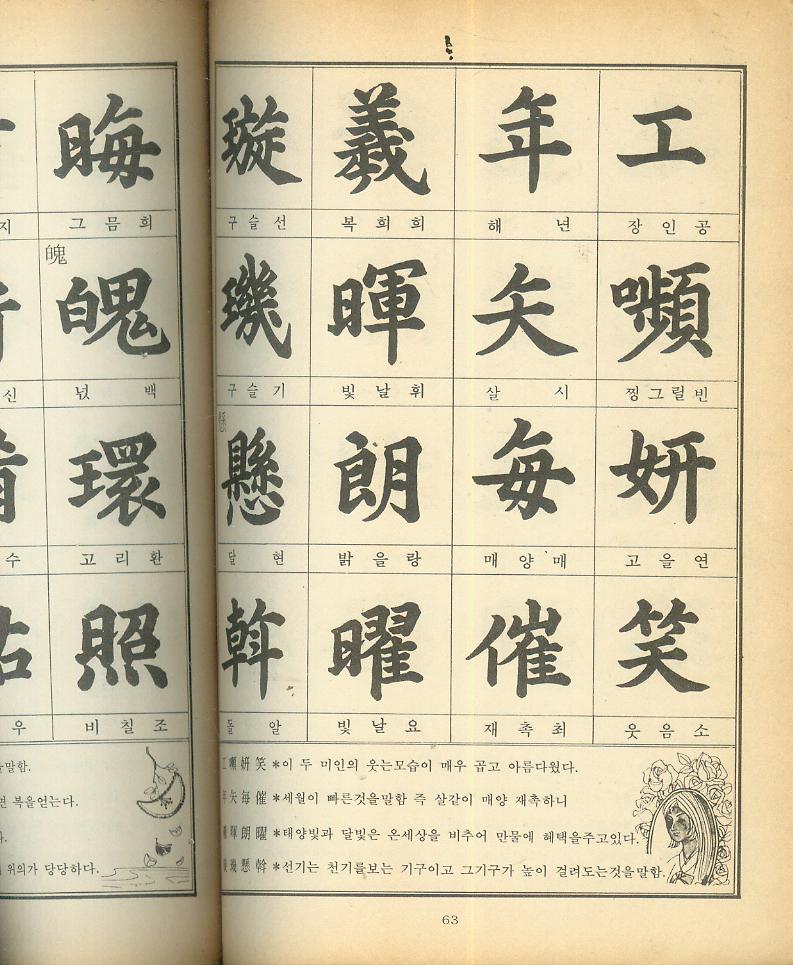 晦
지 그 믐 희
魄
魄
신 넋 백
環
수 고 리 환
照
우 비 칠 조
말함.
면 복을얻는다.
위의가 당당하다.
璇 羲 年 工
구 슬 선 복 희 희 해 년 장 인 공
璣 暉 矢 嚬
구 슬 기 빛 날 휘 살 시 찡 그 릴 빈
懸 朗 每 姸
달 현 밝 을 랑 매 양 매 고 을 연
斡 曜 催 笑
돌 알 빛 날 요 재 촉 최 웃 음 소
工 嚬 姸 笑 *이 두 미인의 웃는모습이 매우 곱고 아름다웠다.
年 矢 每 催 *세월이 빠른것을말함 즉 살같이 매양 재촉하니
暉 朗 曜 *태양빛과 달빛은 온세상을 비추어 만물에 혜택을주고있다.
璣 懸 斡 *선기는 천기를보는 기구이고 그기구가 높이 걸려도는것을말함.
63